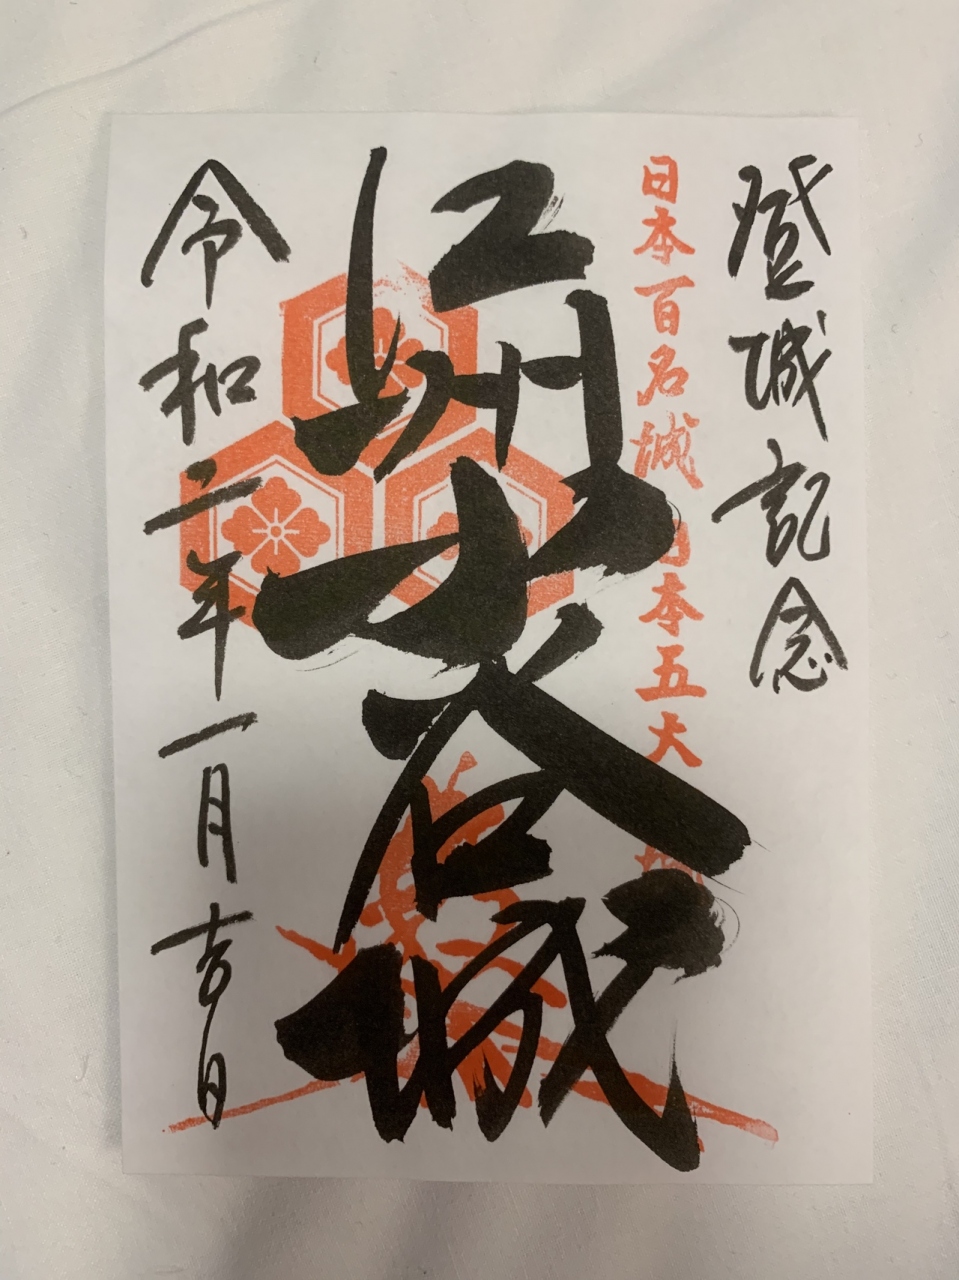 登城記念
日本百名城 日本五大
江州小谷城
令和二年一月吉日